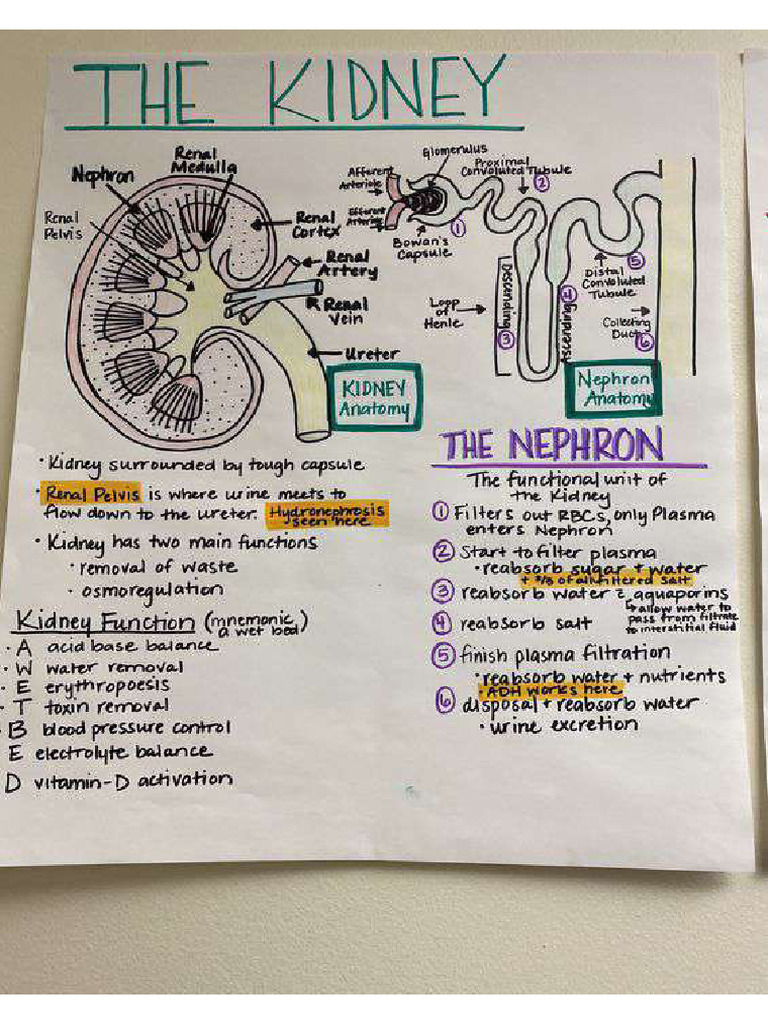 THE KIDNEY
Nephron
Renal
Medulla
Renal
Pelvis
Renal
Cortex
Renal
Artery
Renal
Vein
Ureter
KIDNEY
Anatomy
Glomerulus
Afferent
Arteriole
Efferent
Arteriole
Proximal
Convoluted Tubule
②
①
Bowan's
Capsule
Loop
of
Henle
Descending
③
④
Ascending
⑤
Distal
Convoluted
Tubule
Collecting
Duct
⑥
Nephron
Anatomy
· Kidney surrounded by tough capsule
· Renal Pelvis is where urine meets to
flow down to the ureter. Hydronephrosis
seen here
· Kidney has two main functions
· removal of waste
· osmoregulation
Kidney Function (mnemonic
a wet bed)
· A acid base balance
· W water removal
· E erythropoesis
· T toxin removal
· B blood pressure control
E electrolyte balance
D vitamin-D activation
THE NEPHRON
The functional unit of
the Kidney
① Filters out RBCs, only Plasma
enters Nephron
② Start to filter plasma
· reabsorb sugar + water
+ 2/3 of all filtered salt
③ reabsorb water c̄ aquaporins
↳ allow water to
pass from filtrate
to interstitial fluid
④ reabsorb salt
⑤ finish plasma filtration
· reabsorb water + nutrients
· ADH works here
⑥ disposal + reabsorb water
· urine excretion